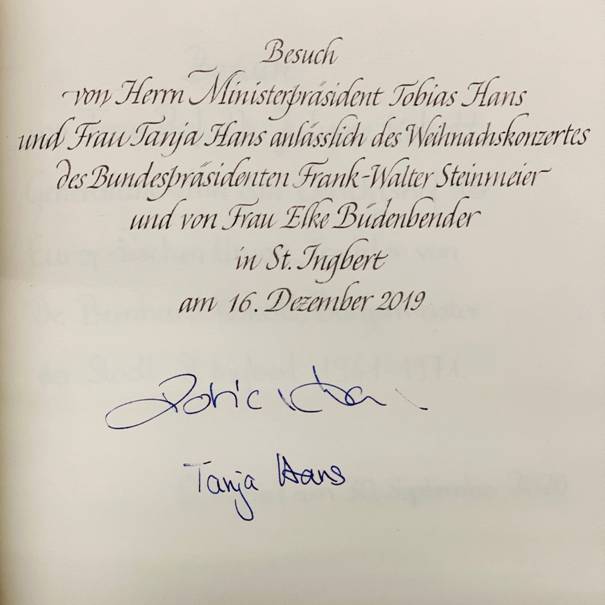 Besuch
von Herrn Ministerpräsident Tobias Hans
und Frau Tanja Hans anlässlich des Weihnachskonzertes
des Bundespräsidenten Frank-Walter Steinmeier
und von Frau Elke Büdenbender
in St. Ingbert
am 16. Dezember 2019
Tanja Hans